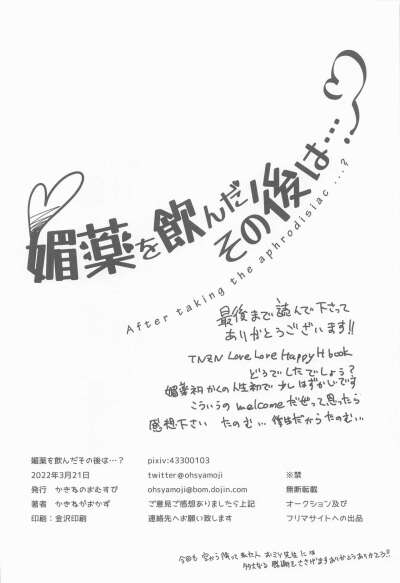 媚薬を飲んだその後は…?
After taking the aphrodisiac ...?
最後まで読んで下さって
ありがとうございます!!
TNZN Love Love Happy H book
どうでしたでしょう?
媚薬初かくの人生初で少しはずかしいです
こういうの welcomeだぜって思ったら
感想下さい たのむ… 後生だからたのむ…
媚薬を飲んだその後は…?
2022年3月21日
発行 かきねのおむすび
著者 かきねがおかず
印刷:金沢印刷
pixiv:43300103
twitter@ohsyamoji
ohsyamoji@bom.dojin.com
ご意見ご感想ありましたら上記
連絡先へお願い致します
※禁
無断転載
オークション及び
フリマサイトへの出品
今回も 手伝って くれた おミソ先生には
多大なる 感謝をささげます ありがとうありがとう!!